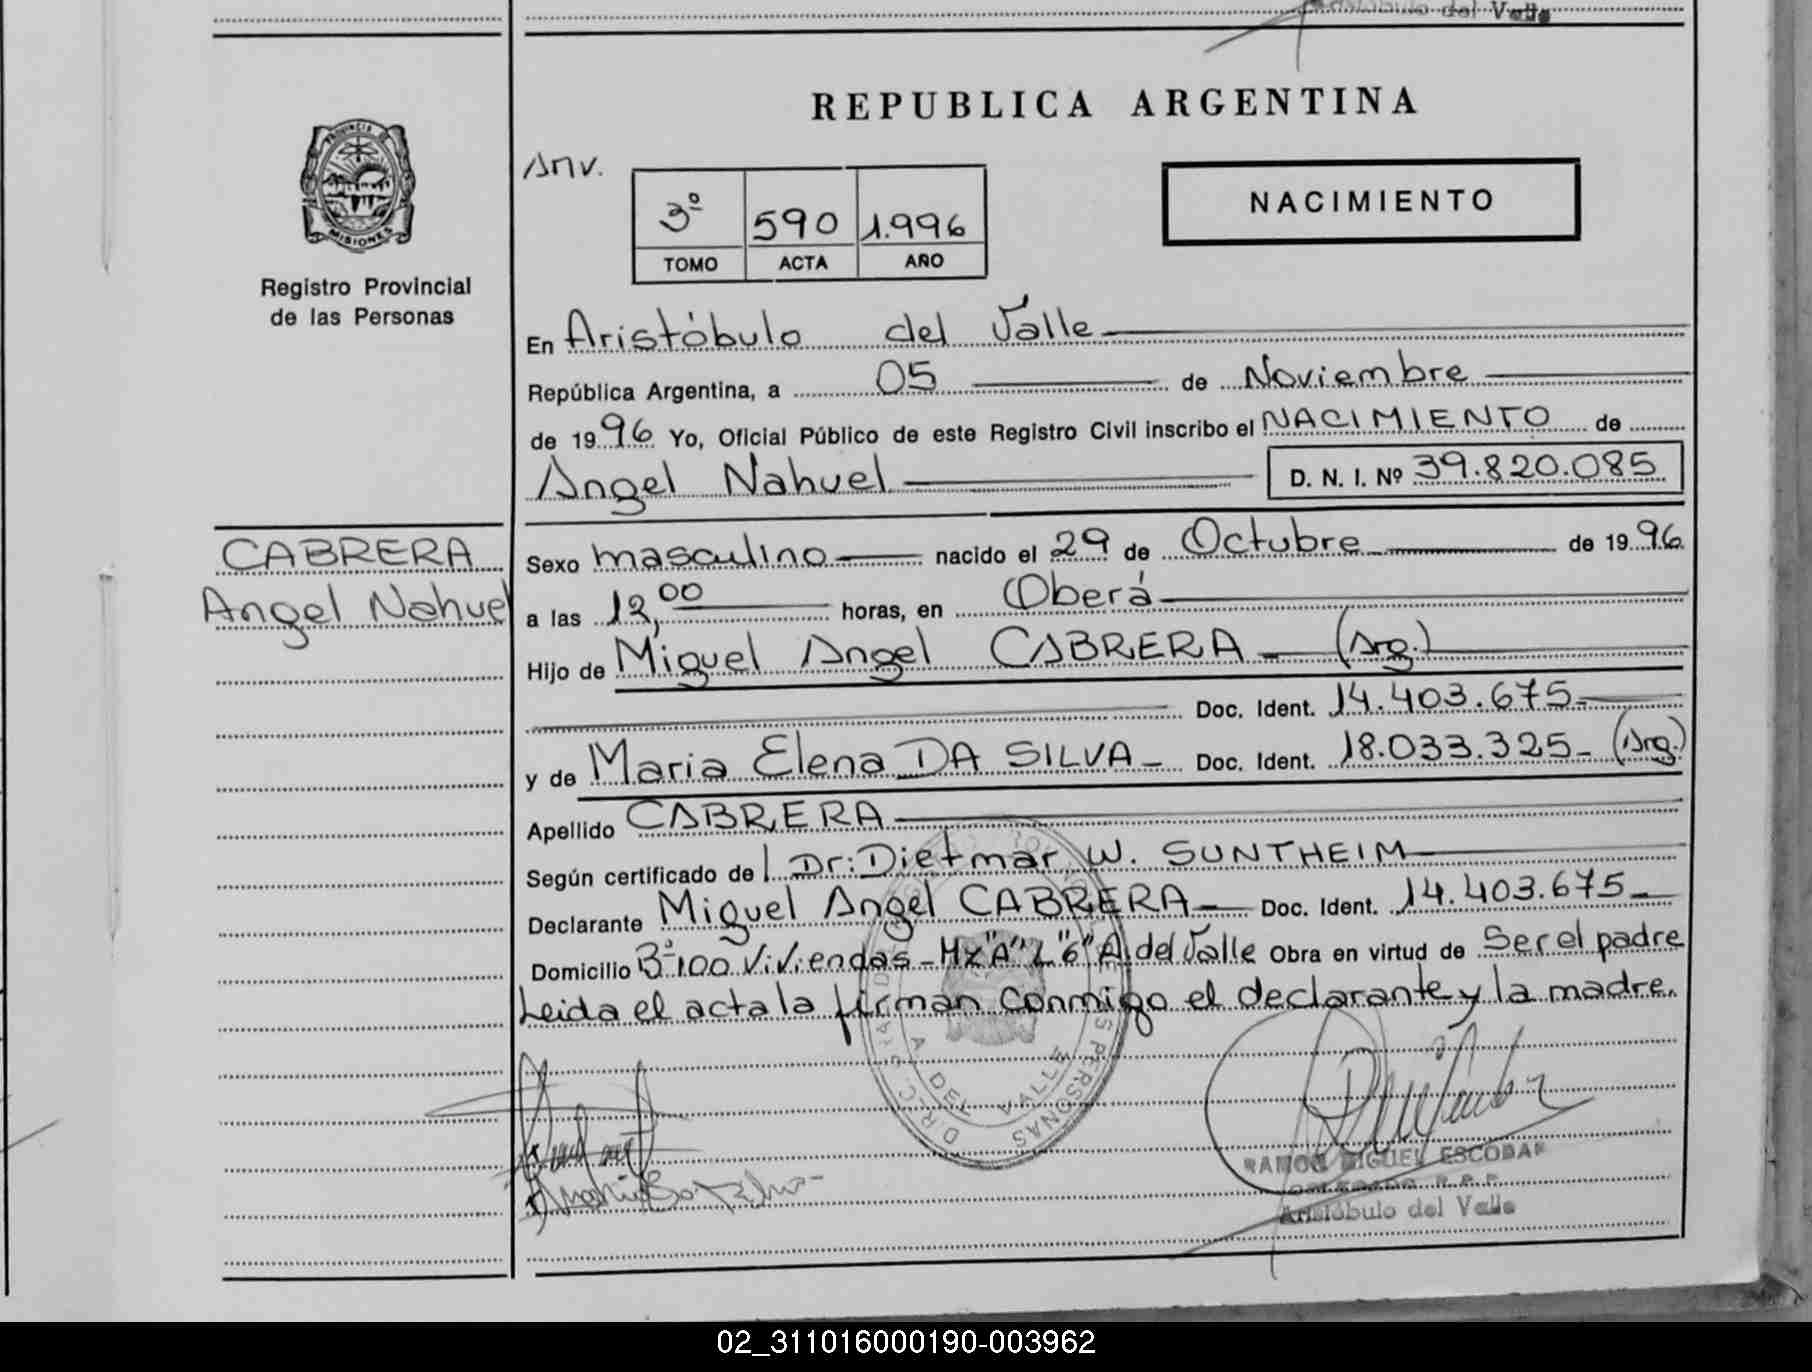 del Valle
PROVINCIA DE
MISIONES
Registro Provincial
de las Personas
CABRERA
Angel Nahuel
REPUBLICA ARGENTINA
Anv.
3º 590 1.996
TOMO ACTA AÑO
NACIMIENTO
En Aristóbulo del Valle
República Argentina, a 05 de Noviembre
de 1996 Yo, Oficial Público de este Registro Civil inscribo el NACIMIENTO de
Angel Nahuel D. N. I. Nº 39.820.085
Sexo masculino nacido el 29 de Octubre de 1996
a las 12,00 horas, en Oberá
Hijo de Miguel Angel CABRERA (Arg.)
Doc. Ident. 14.403.675
y de Maria Elena DA SILVA Doc. Ident. 18.033.325 (Arg.)
Apellido CABRERA
Según certificado de Dr: Dietmar W. SUNTHEIM
Declarante Miguel Angel CABRERA Doc. Ident. 14.403.675
Domicilio Bº 100 Viviendas - Mz "A" L "6" A. del Valle Obra en virtud de Ser el padre
Leida el acta la firman conmigo el declarante y la madre.
A DEL VALLE
PERSONAS
RAMON MIGUEL ESCOBAR
DELEGADO R.P.P.
Aristóbulo del Valle
02_311016000190-003962